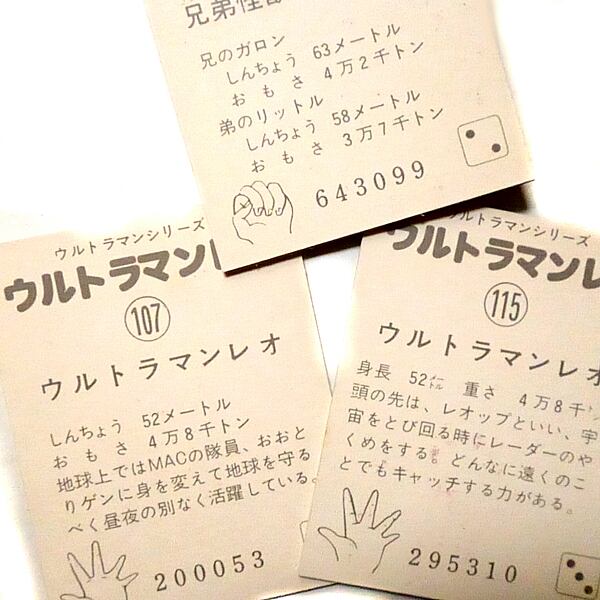 兄弟怪獣
兄のガロン
しんちょう 63メートル
おもさ 4万2千トン
弟のリットル
しんちょう 58メートル
おもさ 3万7千トン
643099
ウルトラマンシリーズ
ウルトラマンレ
107
ウルトラマンレオ
しんちょう 52メートル
おもさ 4万8千トン
地球上ではMACの隊員、おおと
りゲンに身を変えて地球を守る
べく昼夜の別なく活躍している。
200053
ウルトラマンシリーズ
ウルトラマンレ
115
ウルトラマンレオ
身長 52メートル 重さ 4万8千
頭の先は、レオップといい、宇
宙をとび回る時にレーダーのや
くめをする。どんなに遠くのこ
とでもキャッチする力がある。
295310